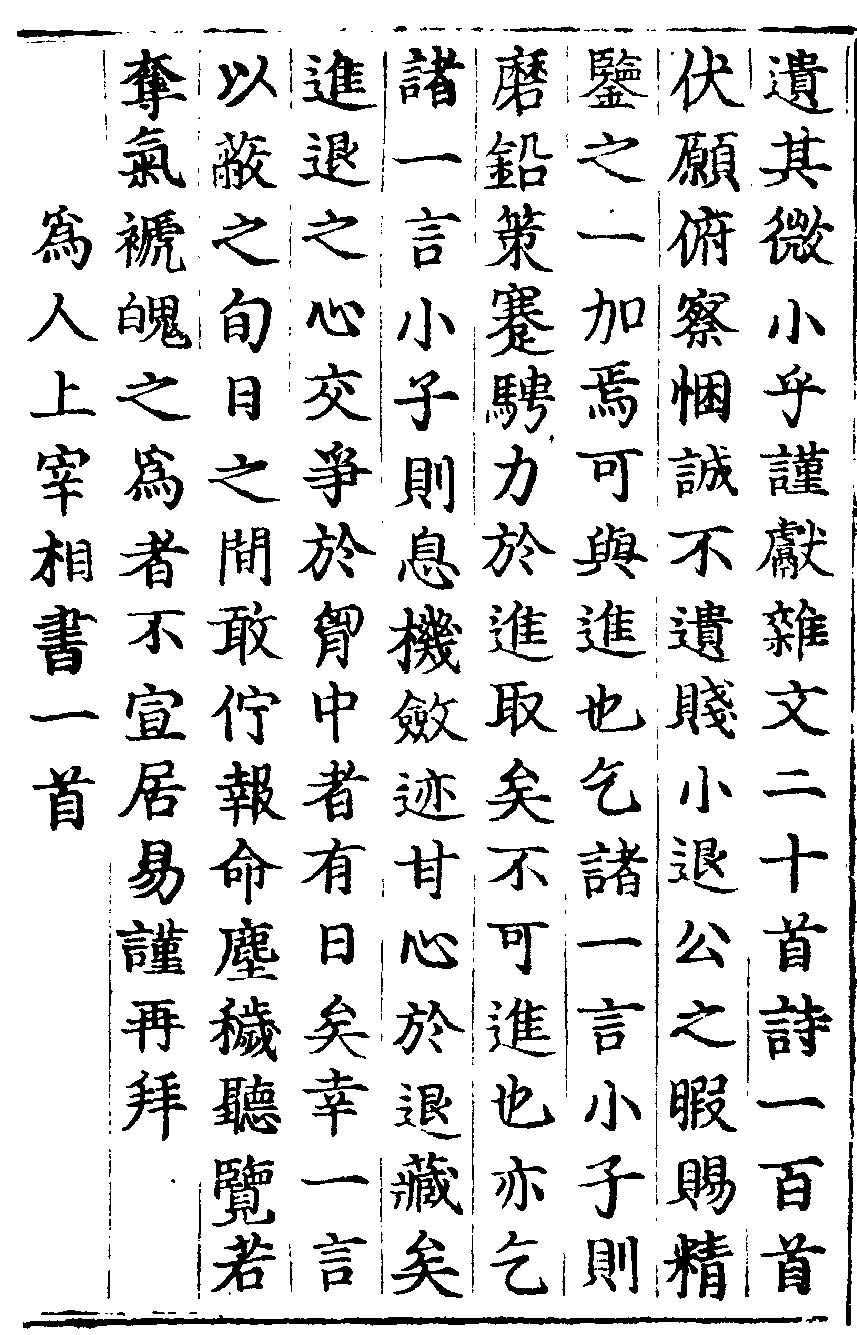 遺其微小乎謹獻雜文二十首詩一百首
伏願俯察悃誠不遺賤小退公之暇賜精
鑒之一加焉可與進也乞諸一言小子則
磨鉛策蹇騁力於進取矣不可進也亦乞
諸一言小子則息機斂迹甘心於退藏矣
進退之心交爭於胷中者有日矣幸一言
以蔽之旬日之間敢佇報命塵穢聽覽若
奪氣褫魄之為者不宣居易謹再拜
為人上宰相書一首